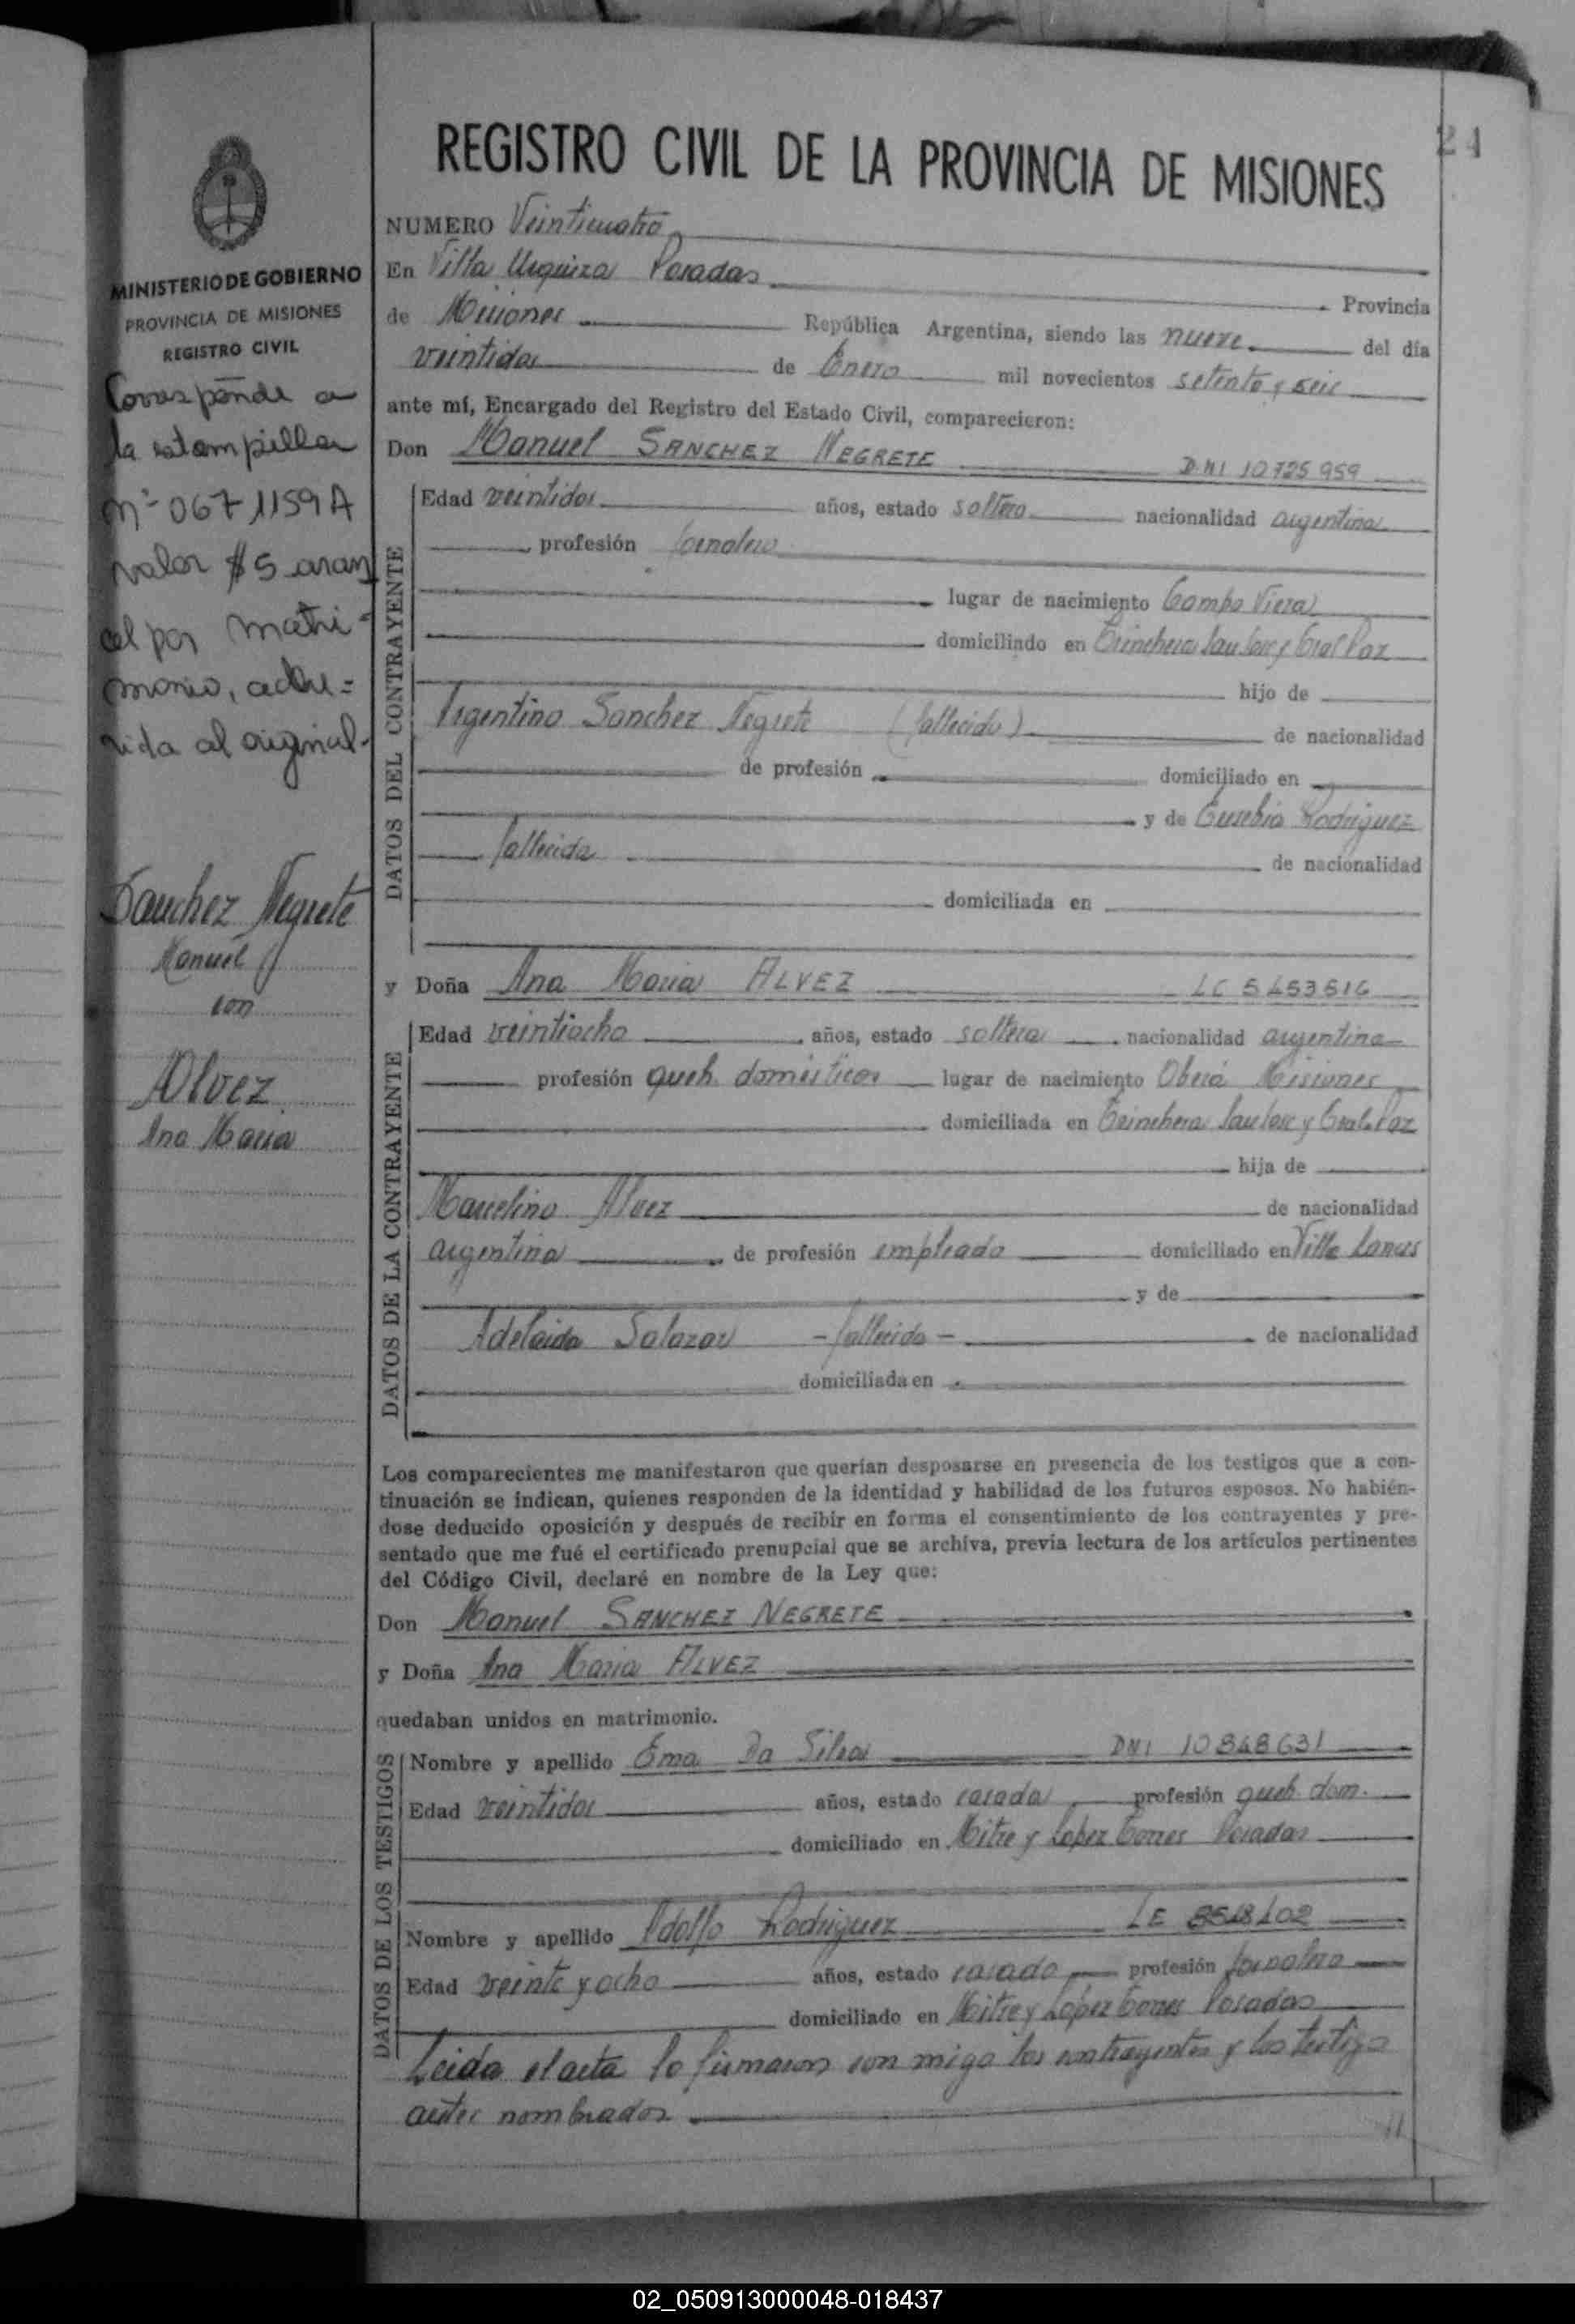 24
REGISTRO CIVIL DE LA PROVINCIA DE MISIONES
MINISTERIO DE GOBIERNO
PROVINCIA DE MISIONES
REGISTRO CIVIL
Corresponde a
la estampilla
nº 0671159A
valor $5 aran
cel por matri=
monio, adhe=
rida al original.-
Sanchez Negrete
Manuel
con
Alvez
Ana Maria
NUMERO Veinticuatro
En Villa Urquiza Posadas Provincia
de Misiones República Argentina, siendo las nueve del día
veintidos de Enero mil novecientos setenta y seis
ante mí, Encargado del Registro del Estado Civil, comparecieron:
Don Manuel SANCHEZ NEGRETE DNI 10725959
DATOS DEL CONTRAYENTE
Edad veintidos años, estado soltero nacionalidad argentina
profesión jornalero
lugar de nacimiento Campo Viera
domiciliado en Trinchera San Jose y Gral Paz
hijo de
Argentino Sanchez Negrete (fallecido) de nacionalidad
de profesión domiciliado en
y de Eusebia Rodriguez
fallecida de nacionalidad
domiciliada en
y Doña Ana Maria ALVEZ LC 5453516
DATOS DE LA CONTRAYENTE
Edad veintiocho años, estado soltera nacionalidad argentina
profesión queh. domésticos lugar de nacimiento Oberá Misiones
domiciliada en Trinchera San Jose y Gral. Paz
hija de
Marcelino Alvez de nacionalidad
argentina de profesión empleado domiciliado en Villa Lanus
y de
Adelaida Salazar - fallecida - de nacionalidad
domiciliada en
Los comparecientes me manifestaron que querían desposarse en presencia de los testigos que a con-
tinuación se indican, quienes responden de la identidad y habilidad de los futuros esposos. No habién-
dose deducido oposición y después de recibir en forma el consentimiento de los contrayentes y pre-
sentado que me fué el certificado prenupcial que se archiva, previa lectura de los artículos pertinentes
del Código Civil, declaré en nombre de la Ley que:
Don Manuel SANCHEZ NEGRETE
y Doña Ana Maria ALVEZ
quedaban unidos en matrimonio.
DATOS DE LOS TESTIGOS
Nombre y apellido Ema Da Silva DNI 10848631
Edad veintidos años, estado casada profesión queh. dom.
domiciliado en Mitre y Lopez Torres Posadas
Nombre y apellido Adolfo Rodriguez LE
Edad veinte y ocho años, estado casado profesión jornalero
domiciliado en Mitre y López Torres Posadas
Leida el acta lo firmaron con migo los contrayentes y los testigo
antes nombrados
//
02_050913000048-018437